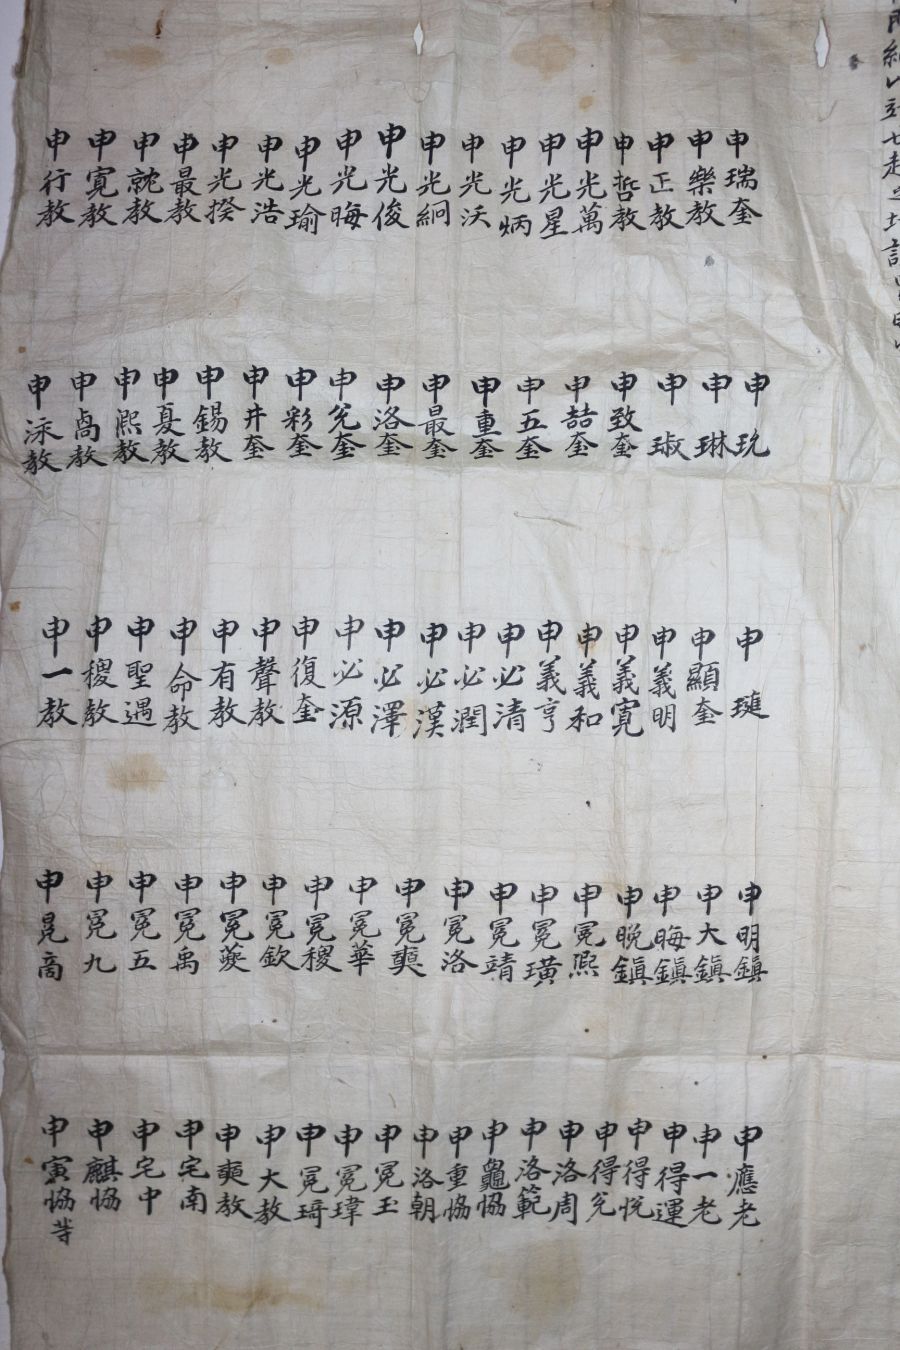 申瑞奎
申樂教
申正教
申哲教
申光萬
申光星
申光炳
申光沃
申光絅
申光俊
申光晦
申光瑜
申光浩
申光揆
申最教
申就教
申寬教
申行教
申玧
申琳
申琡
申致奎
申喆奎
申五奎
申重奎
申最奎
申洛奎
申兌奎
申彩奎
申井奎
申錫教
申夏教
申熙教
申卨教
申泳教
申璉
申顯奎
申義明
申義寬
申義和
申義亨
申必清
申必潤
申必漢
申必澤
申必源
申復奎
申聲教
申有教
申命教
申聖遇
申稷教
申一教
申明鎭
申大鎭
申晦鎭
申晚鎭
申冕熙
申冕璜
申冕靖
申冕洛
申冕奭
申冕華
申冕稷
申冕欽
申冕夔
申冕禹
申冕五
申冕九
申冕卨
申應老
申一老
申得運
申得悅
申得兌
申洛周
申洛範
申龜協
申重協
申洛朝
申冕玉
申冕瑋
申冕琦
申大教
申奭教
申宅南
申宅中
申麒協
申寅協等